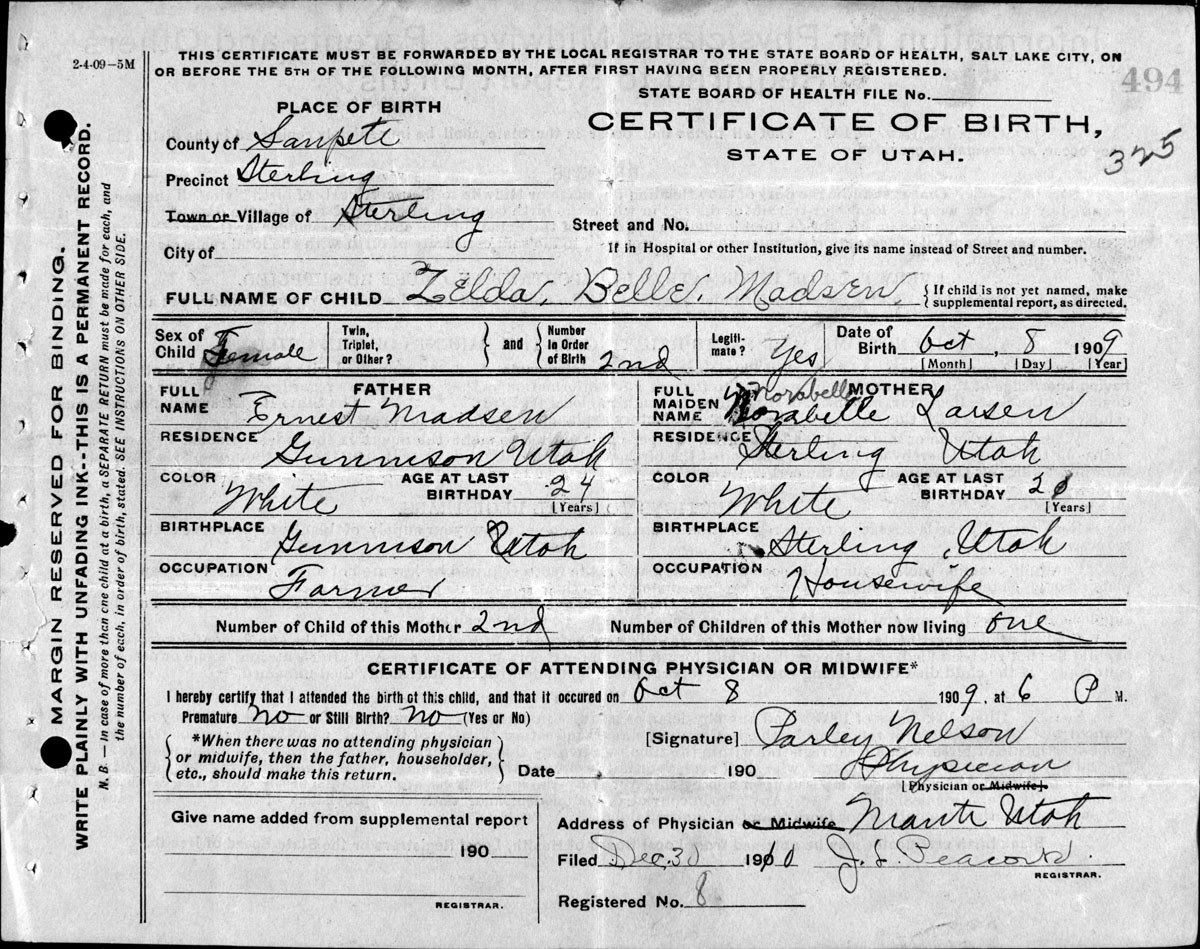 2-4-09—5M
THIS CERTIFICATE MUST BE FORWARDED BY THE LOCAL REGISTRAR TO THE STATE BOARD OF HEALTH, SALT LAKE CITY, ON
OR BEFORE THE 5TH OF THE FOLLOWING MONTH, AFTER FIRST HAVING BEEN PROPERLY REGISTERED.
494
STATE BOARD OF HEALTH FILE No.
PLACE OF BIRTH
CERTIFICATE OF BIRTH,
STATE OF UTAH.
325
County of Sanpete
Precinct Sterling
Town or Village of Sterling
Street and No.
City of
If in Hospital or other Institution, give its name instead of Street and number.
FULL NAME OF CHILD Zelda. Belle. Madsen. {If child is not yet named, make supplemental report, as directed.}
Sex of Child Female Twin, Triplet, or Other? } and { Number in Order of Birth 2nd Legitimate? Yes Date of Birth Oct, 8 1909
[Month] [Day] [Year]
FATHER
FULL NAME Ernest Madsen
RESIDENCE Gunnison Utah
COLOR White AGE AT LAST BIRTHDAY 24
[Years]
BIRTHPLACE Gunnison Utah
OCCUPATION Farmer
MOTHER
Norabelle
FULL MAIDEN NAME Norabelle Larsen
RESIDENCE Sterling Utah
COLOR White AGE AT LAST BIRTHDAY
[Years]
BIRTHPLACE Sterling, Utah
OCCUPATION Housewife
Number of Child of this Mother 2nd Number of Children of this Mother now living one
CERTIFICATE OF ATTENDING PHYSICIAN OR MIDWIFE*
I hereby certify that I attended the birth of this child, and that it occured on Oct 8 1909. at 6 P M.
Premature No or Still Birth? No (Yes or No)
{*When there was no attending physician
or midwife, then the father, householder,
etc., should make this return.}
[Signature] Parley Nelson
Date 190 Physician
[Physician or Midwife].
Give name added from supplemental report
190
REGISTRAR.
Address of Physician or Midwife Manti Utah
Filed Dec. 30 1910 J. L. Peacock.
REGISTRAR.
Registered No. 8
MARGIN RESERVED FOR BINDING.
WRITE PLAINLY WITH UNFADING INK--THIS IS A PERMANENT RECORD.
N. B — In case of more then one child at a birth, a SEPARATE RETURN must be made for each, and
the number of each, in order of birth, stated. SEE INSTRUCTIONS ON OTHER SIDE.